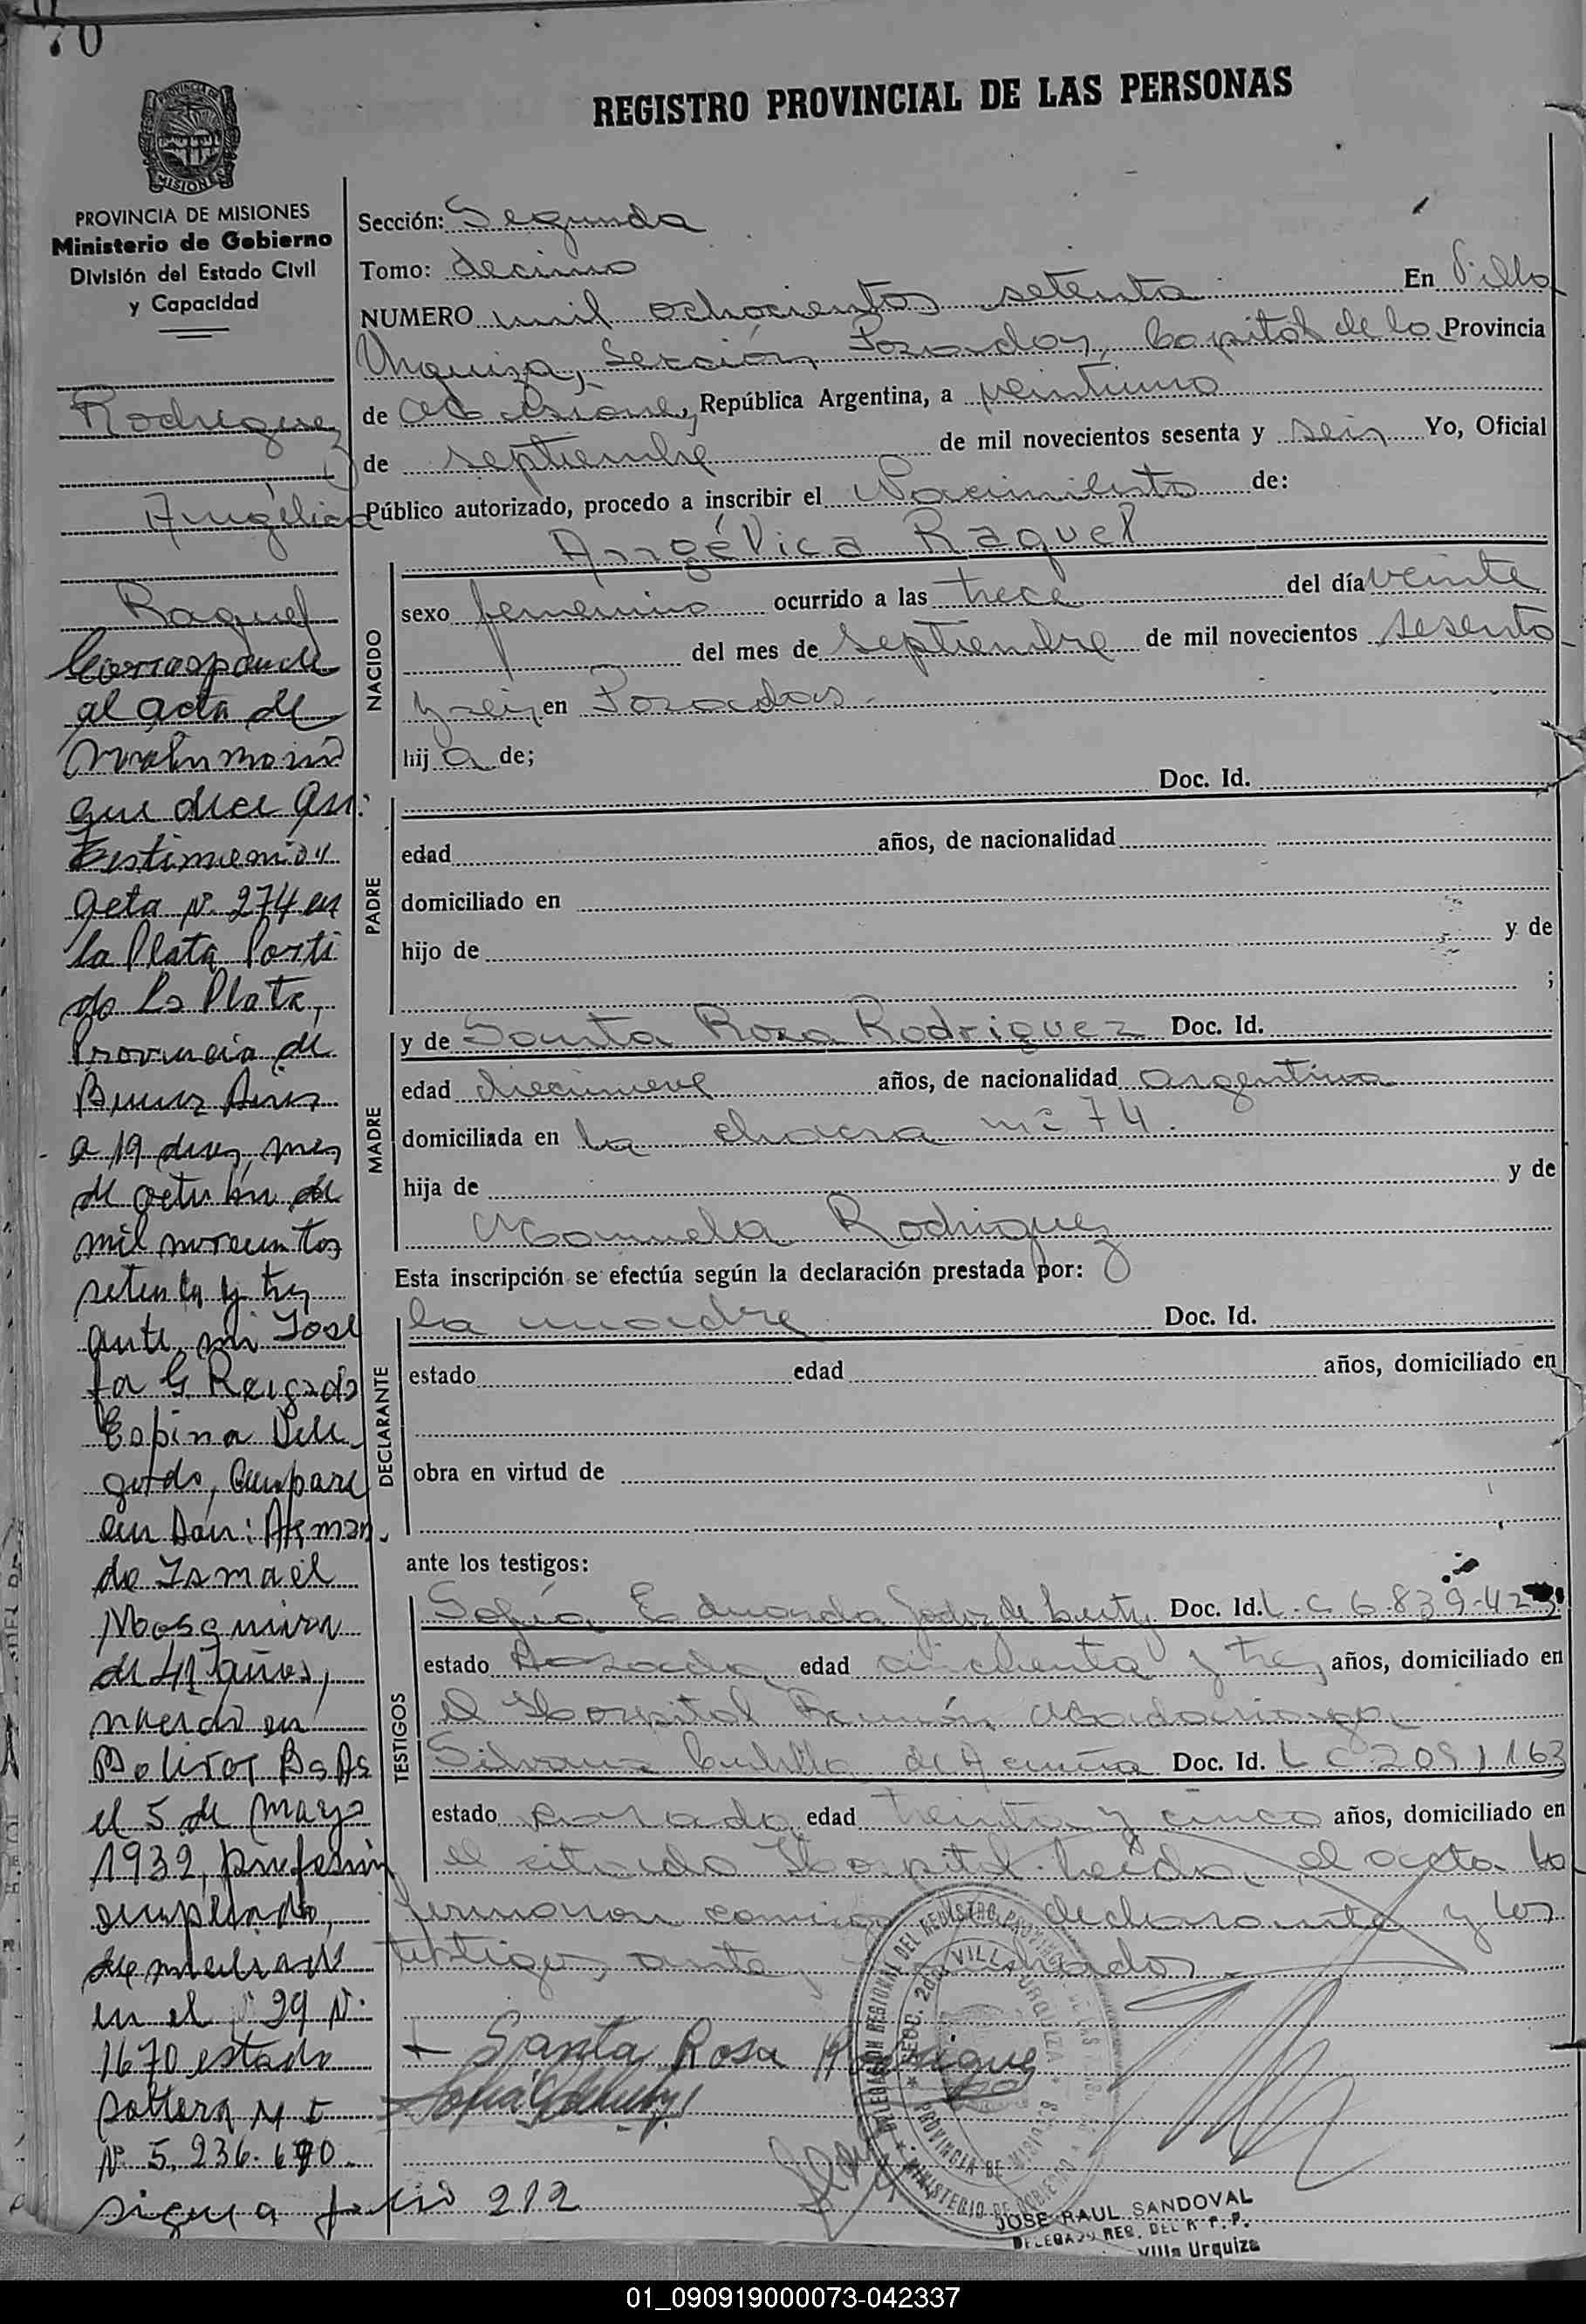 70
REGISTRO PROVINCIAL DE LAS PERSONAS
PROVINCIA DE MISIONES
Ministerio de Gobierno
División del Estado Civil
y Capacidad
Rodriguez
Angélica
Raquel
Corresponde
al acta de
Matrimonio
que dice asi:
Testimonio"
Acta Nº 274 en
la Plata Parti
do La Plata,
Provincia de
Buenos Aires
a 19 dias, mes
de octubre de
mil novecientos
setenta y tres
ante mi Jose
fa G. Reigada
Espina Dele
gado, Compare
cen Don: Arman
do Ismael
Mosquera
de 41 años,
nacido en
Bolivar Bs As
el 5 de mayo
1932, profesión
empleado,
domiciliado
en el 29 Nº
1670 estado
soltero M I
Nº 5.236.690.
sigue a folio 212
Sección: Segunda
Tomo: decimo
NUMERO mil ochocientos setenta En Villa
Urquiza, Sección Posadas, Capital de la Provincia
de Misiones, República Argentina, a veintiuno
de septiembre de mil novecientos sesenta y seis Yo, Oficial
Público autorizado, procedo a inscribir el Nacimiento de:
Angélica Raquel
NACIDO
sexo femenino ocurrido a las trece del día veinte
del mes de septiembre de mil novecientos sesenta
y seis en Posadas.-
hij a de;
PADRE
Doc. Id.
edad años, de nacionalidad
domiciliado en
hijo de y de
;
MADRE
y de Santa Rosa Rodriguez Doc. Id.
edad diecinueve años, de nacionalidad argentina
domiciliada en la chacra nº 74.
hija de y de
Manuela Rodriguez
Esta inscripción se efectúa según la declaración prestada por:
DECLARANTE
la madre Doc. Id.
estado edad años, domiciliado en
obra en virtud de
ante los testigos:
TESTIGOS
Sofía Eduarda de Doc. Id. L.C 6.839.423
estado Casada edad cincuenta y tres años, domiciliado en
el Hospital Ramón Madariaga
Silvana de Acuña Doc. Id. L C 2091163
estado casada edad treinta y cinco años, domiciliado en
el citado Hospital. Leída el acta la
firmaron conmigo declarante y los
testigos, ante
+ Santa Rosa Rodriguez
DELEGACIÓN REGIONAL DEL REGISTRO PROVINCIAL DE LAS PERSONAS
SECC. 2da. VILLA URQUIZA
PROVINCIA DE MISIONES
MINISTERIO DE GOBIERNO
JOSE RAUL SANDOVAL
DELEGADO REG. DEL R. P. P.
Villa Urquiza
01_090919000073-042337